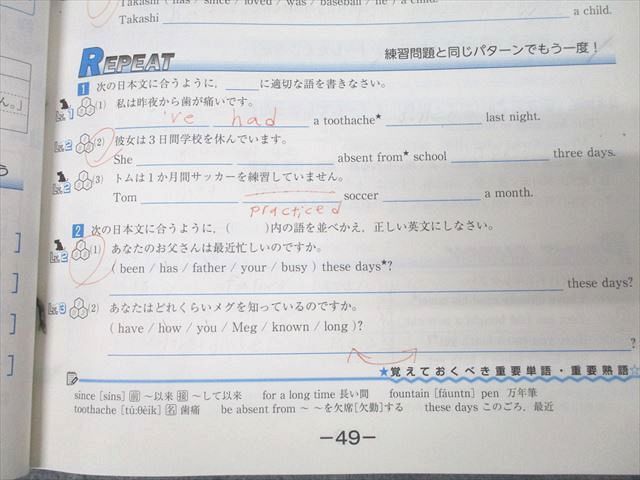 Takashi ( has / since / loved / was / baseball / he ) a child.
Takashi a child.
REPEAT 練習問題と同じパターンでもう一度!
1 次の日本文に合うように, に適切な語を書きなさい。
Lv.1 (1) 私は昨夜から歯が痛いです。
've had a toothache★ last night.
Lv.2 (2) 彼女は3日間学校を休んでいます。
She absent from★ school three days.
Lv.2 (3) トムは1か月間サッカーを練習していません。
Tom soccer a month.
practiced
2 次の日本文に合うように, ( )内の語を並べかえ, 正しい英文にしなさい。
Lv.2 (1) あなたのお父さんは最近忙しいのですか。
( been / has / father / your / busy ) these days★?
these days?
Lv.3 (2) あなたはどれくらいメグを知っているのですか。
(have / how / you / Meg / known / long )?
?
★覚えておくべき重要単語・重要熟語☆
since [sins] 前 〜以来 接 〜して以来 for a long time 長い間 fountain [fáuntn] pen 万年筆
toothache [túːθèik] 名 歯痛 be absent from 〜 〜を欠席[欠勤]する these days このごろ, 最近
-49-